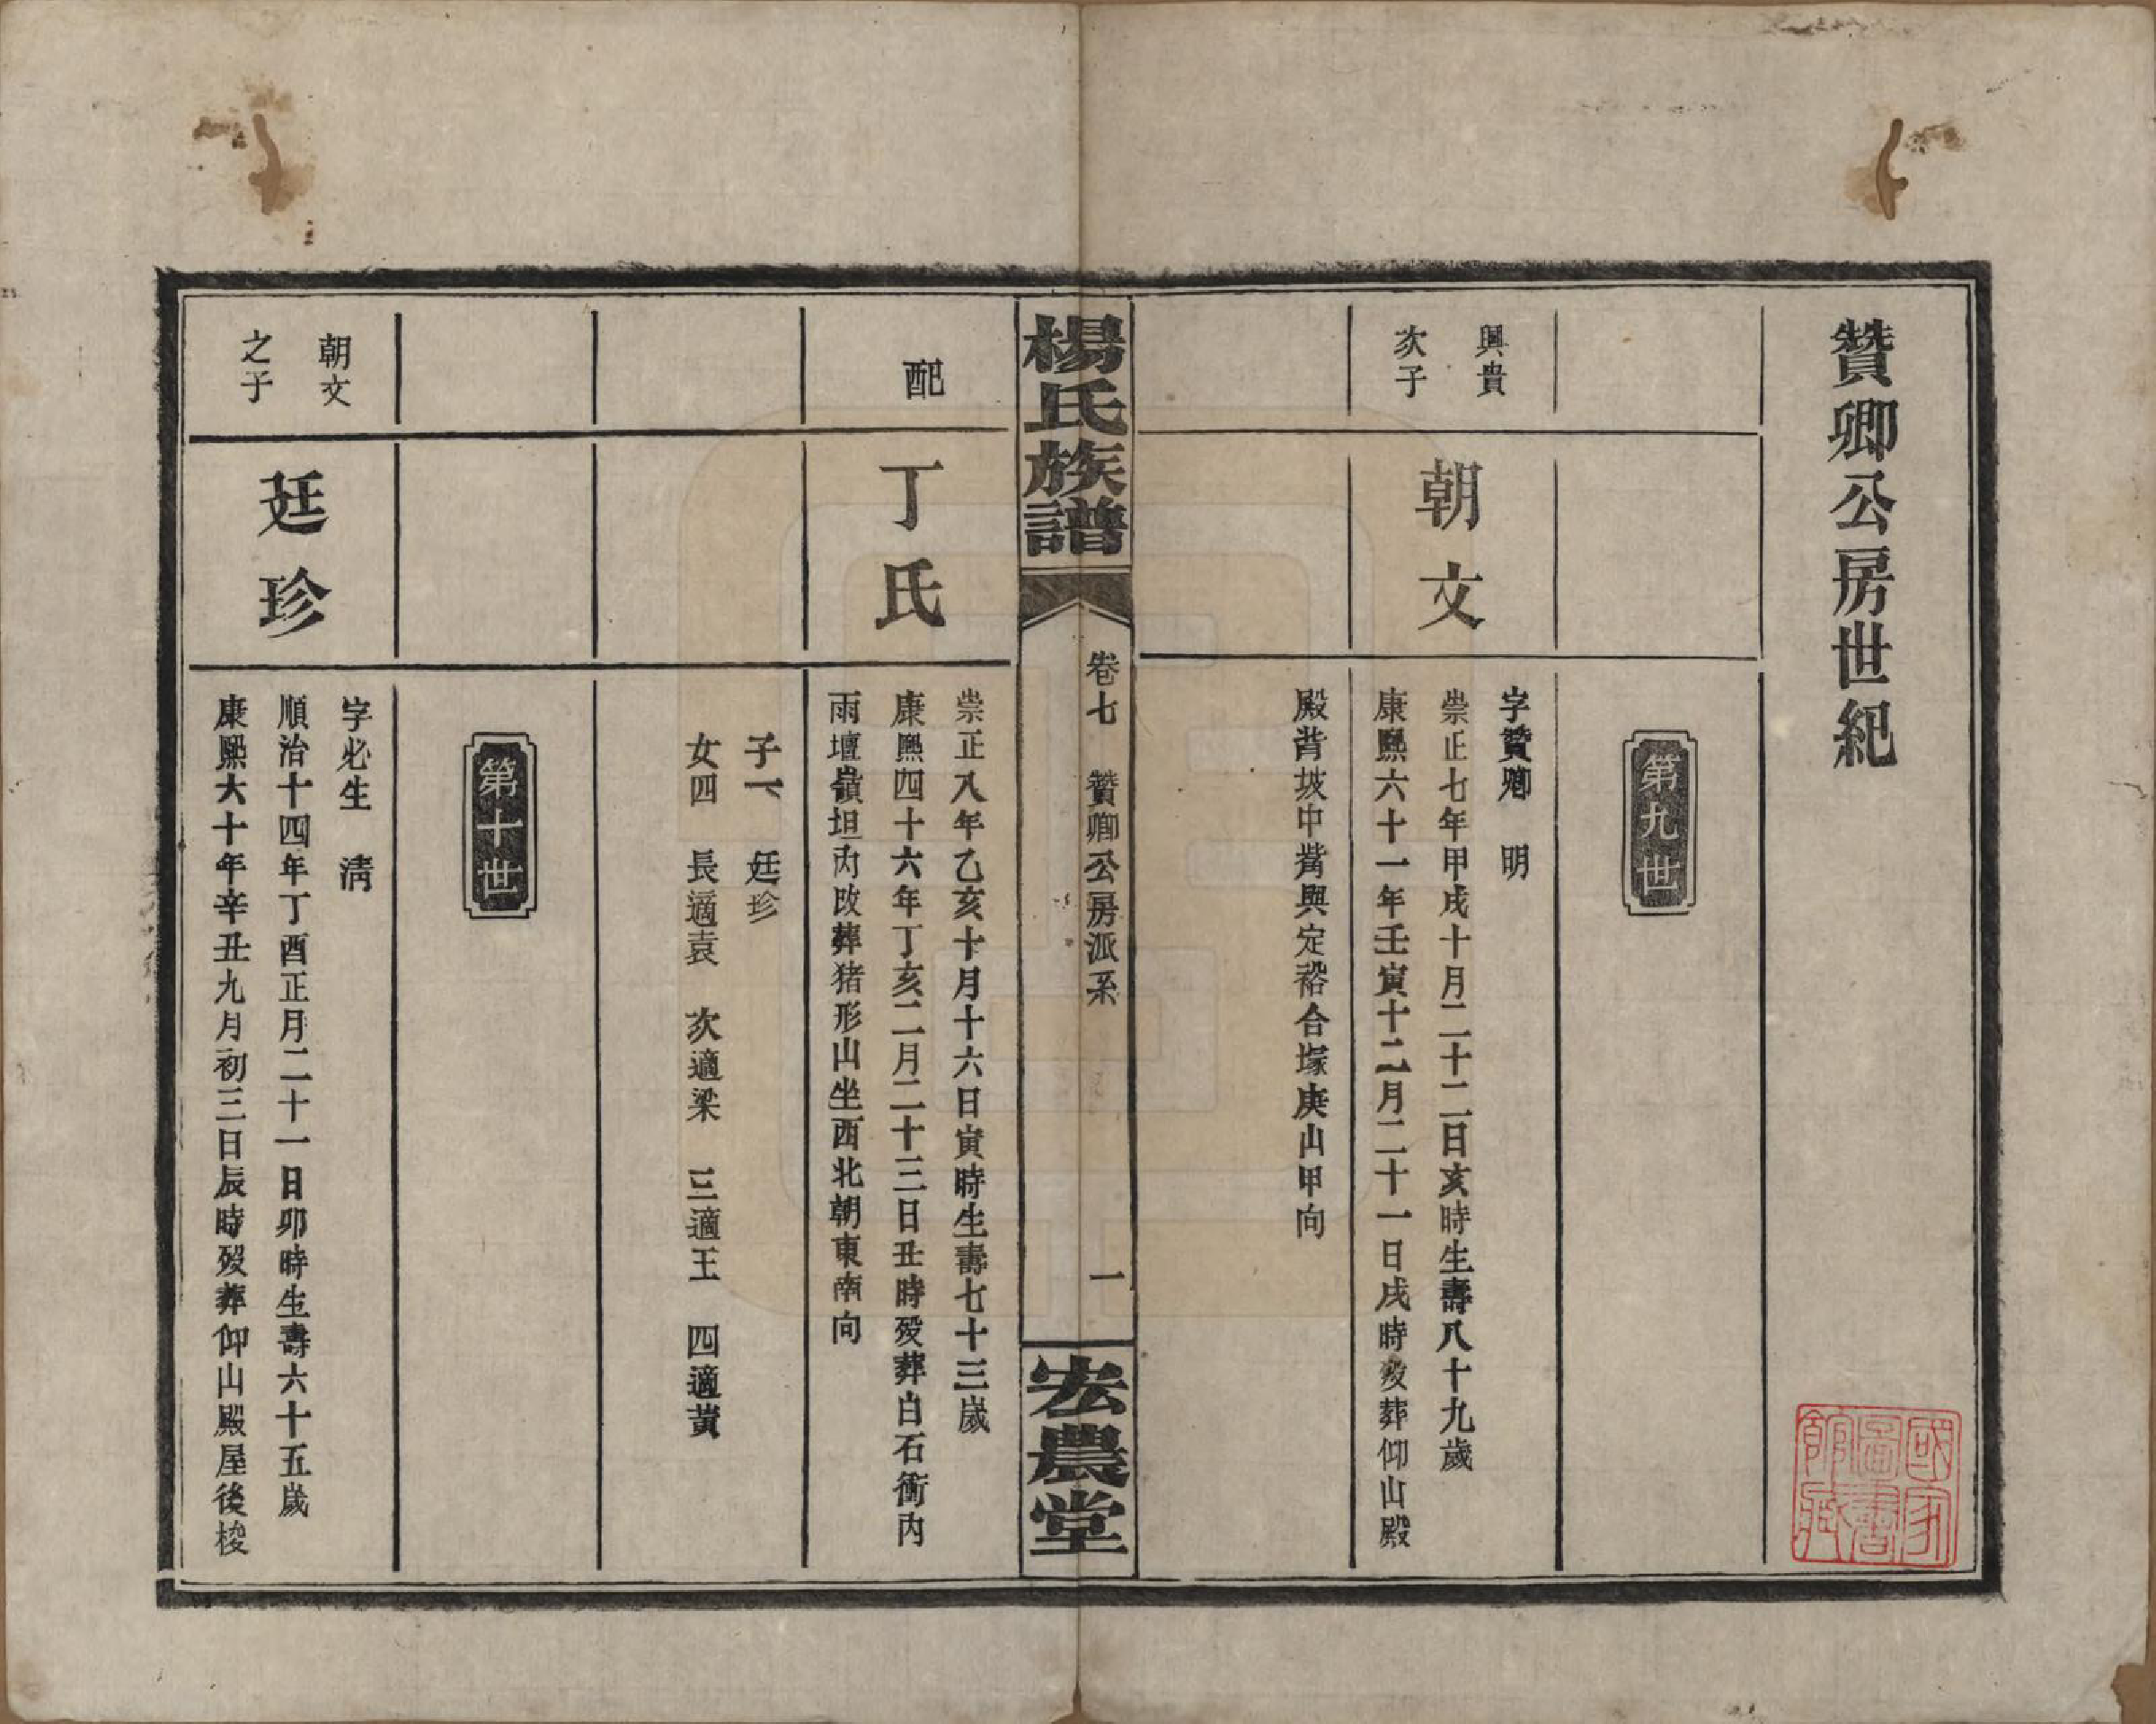 贊卿公房世紀
第九世
興貴
次子
朝文
字贊卿　明
崇正七年甲戌十月二十二日亥時生壽八十九歲
康熙六十一年壬寅十二月二十一日戌時歿葬仰山殿
殿背坡中嘴與定裕合塚庚山甲向
楊氏族譜
卷七　贊卿公房派系
一
宏農堂
配
丁氏
崇正八年乙亥十月十六日寅時生壽七十三歲
康熙四十六年丁亥二月二十三日丑時歿葬白石衝內
雨壇嶺坦內改葬猪形山坐西北朝東南向
子一　廷珍
女四　長適袁　次適梁　三適王　四適黃
第十世
朝文
之子
廷珍
字必生　清
順治十四年丁酉正月二十一日卯時生壽六十五歲
康熙六十年辛丑九月初三日辰時歿葬仰山殿屋後梭
國家
圖書
館藏